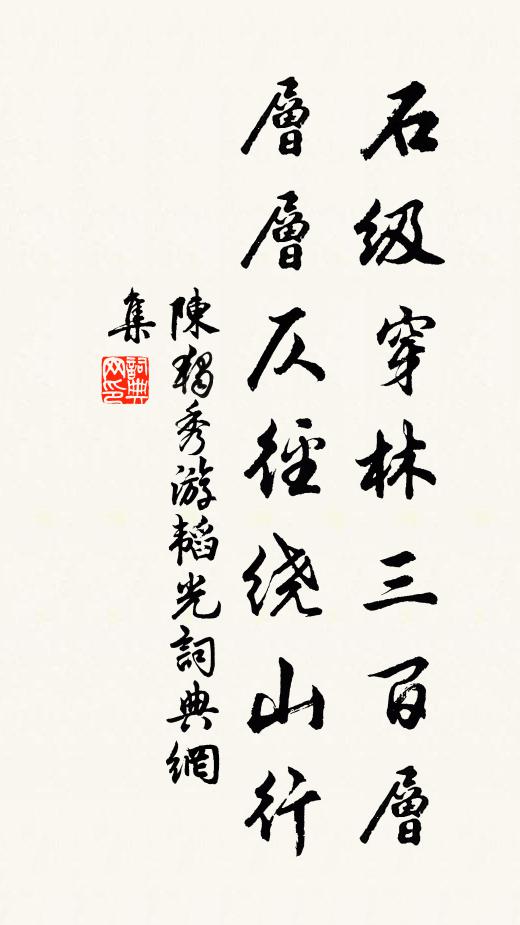 石级穿林三百層
層層仄徑绕山行
陳獨秀游韜光詞典網
集
詞典
网印